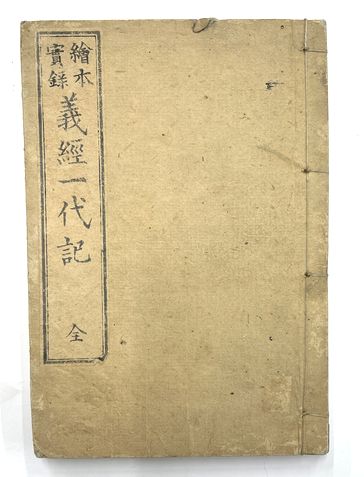 繪本
實錄
義經一代記
全